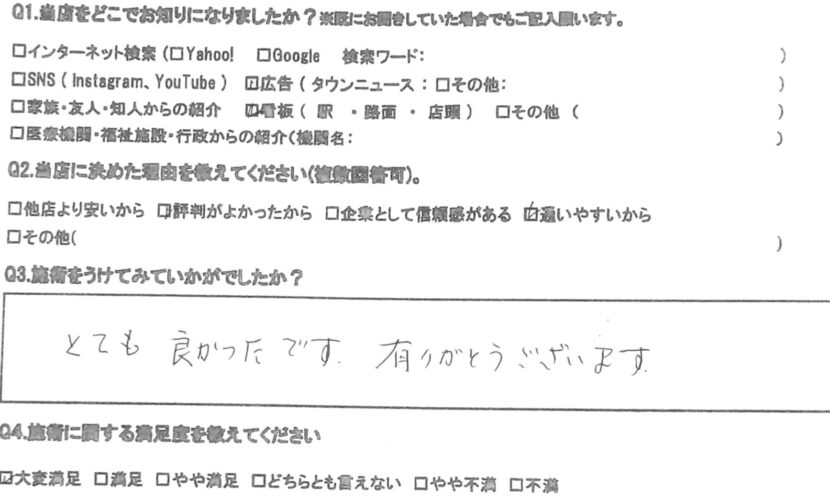 Q1.当店をどこでお知りになりましたか？※既にお聞きしていた場合でもご記入願います。
□インターネット検索（□Yahoo! □Google 検索ワード： ）
□SNS（Instagram、YouTube） ☑広告（タウンニュース：□その他： ）
□家族・友人・知人からの紹介 ☑看板（駅 ・路面 ・ 店頭） □その他（ ）
□医療機関・福祉施設・行政からの紹介（機関名： ）
Q2.当店に決めた理由を教えてください（複数回答可）。
□他店より安いから ☑評判がよかったから □企業として信頼感がある ☑通いやすいから
□その他( )
Q3.施術をうけてみていかがでしたか？
とても 良かったです. 有りがとうございます.
Q4.施術に関する満足度を教えてください
☑大変満足 □満足 □やや満足 □どちらとも言えない □やや不満 □不満